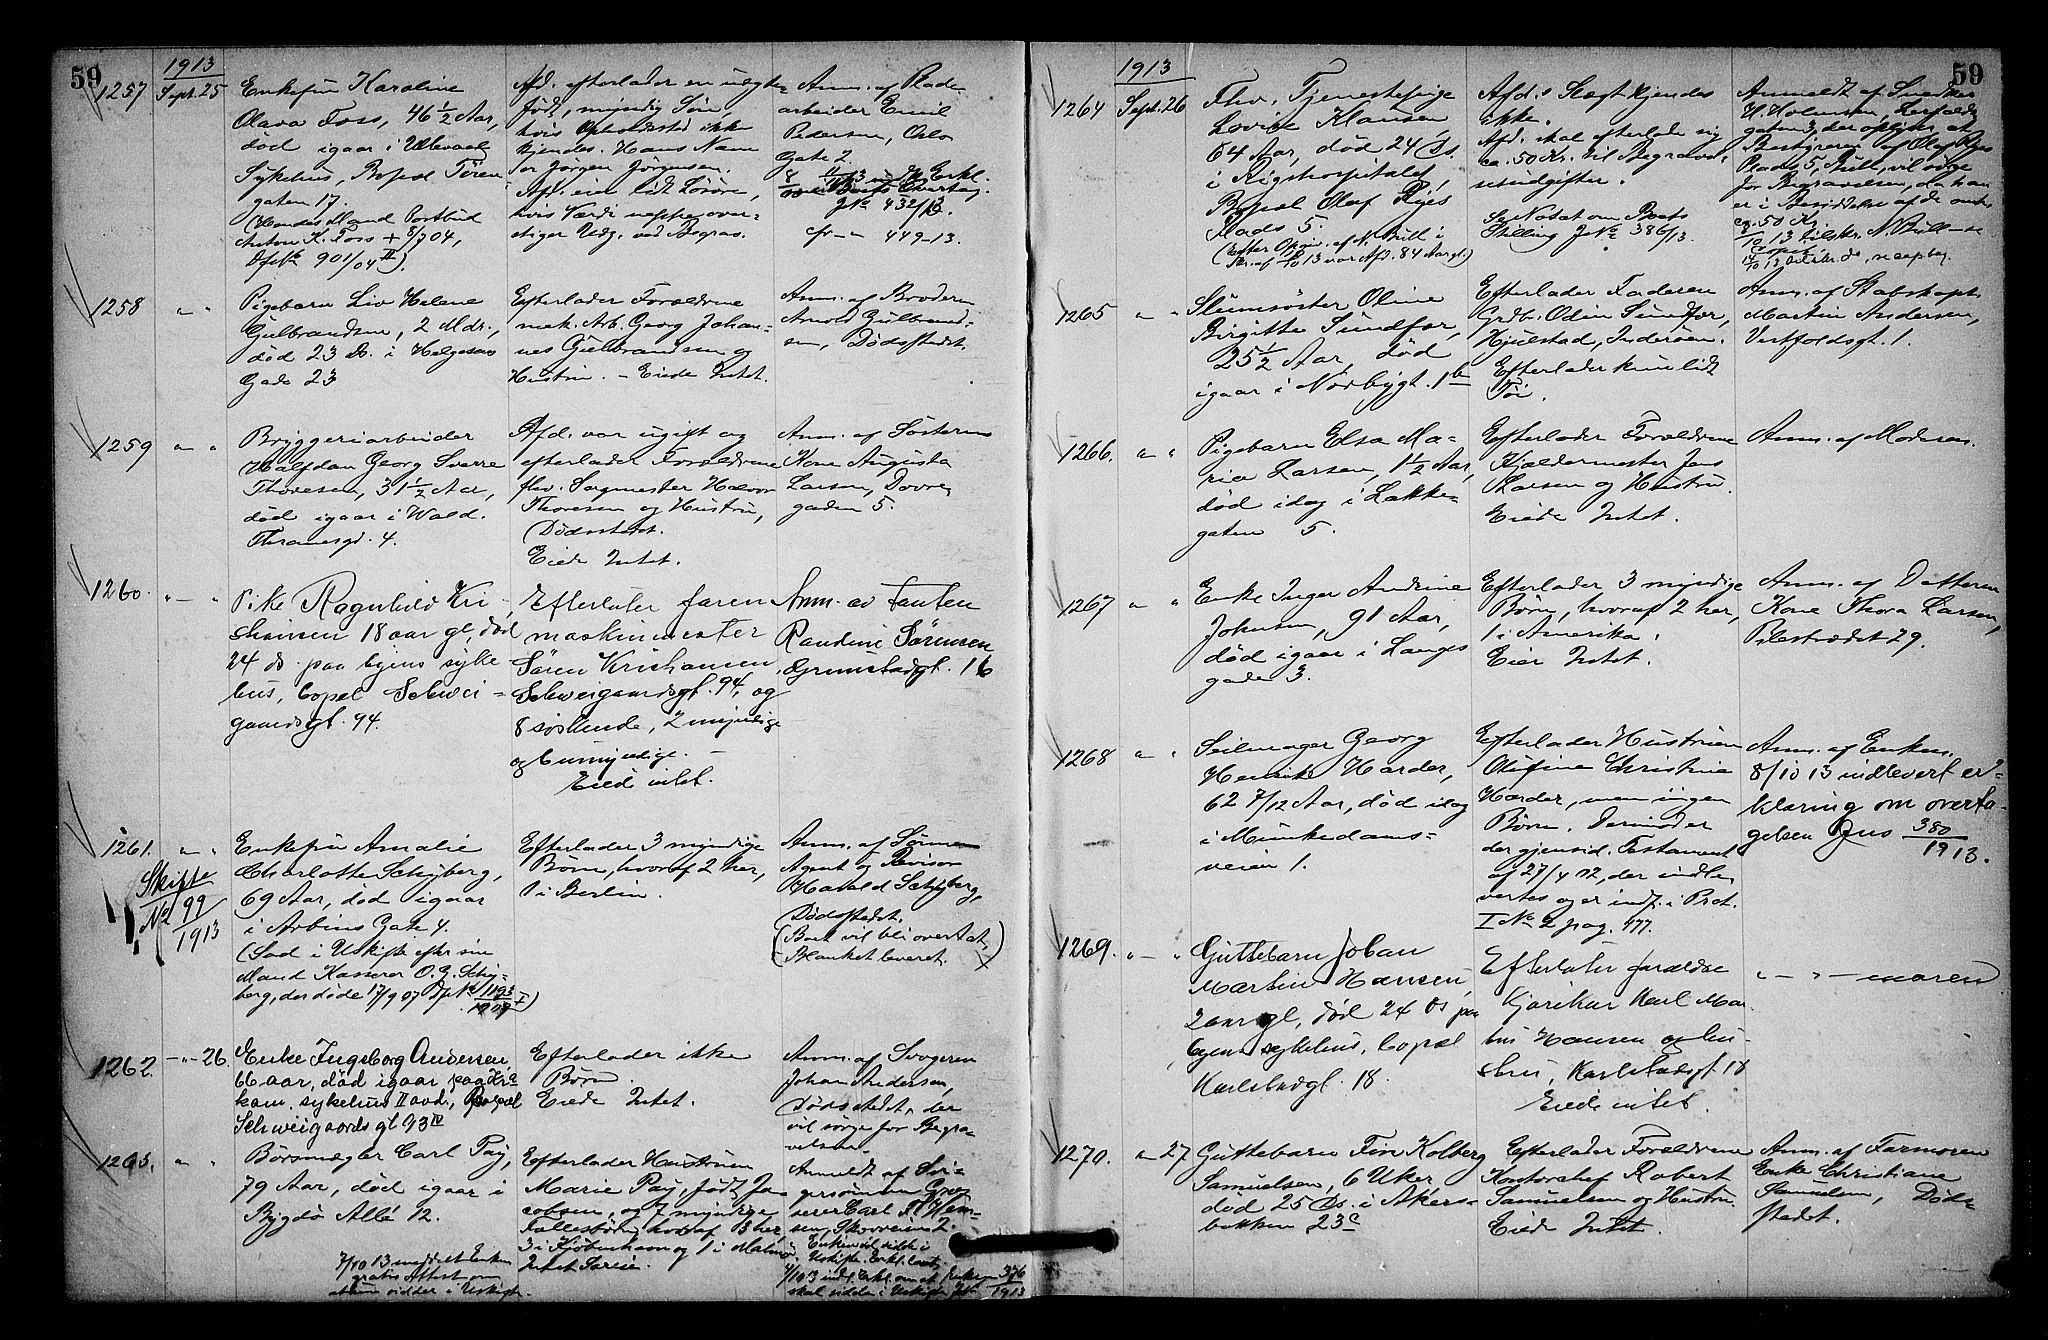 59
1913
1257 Sept. 25
Enkefru Karoline
Olava Foss, 46 1/2 Aar,
død igaar i Ullevaal
Sykehus, Bopæl Tøien
gaten 17.
(Hendes Mand Postbud
Anton K. Foss + 8/7 04,
Dfs No 901/04 II).
Afd. efterlader en uegte
født, myndig Søn,
hvis Opholdssted ikke
kjendes. Hans Navn
er Jørgen Jørgensen.
Afd. eier lidt Løsøre,
hvis Værdi neppe over-
stiger Udg. ved Begrav.
Anm. af Plade
arbeider Emil
Pedersen, Oslo
Gate 2.
J No 432/13
cfr -"- 449-13.
1258 " "
Pigebarn Liv Helene
Gulbrandsen, 2 Mdr.,
død 23 Ds. i Helgesens
Gade 23
Efterlader Forældrene
mek. Arb. Georg Johan-
nes Gulbrandsen og
Hustru. - Eiede Intet.
Anm. af Broderen
Arnold Gulbrand-
sen, Dødsstedet.
1259 " "
Bryggeriarbeider
Halfdan Georg Sverre
Thoresen, 31 1/2 Aar,
død igaar i Wald.
Thranesgd. 4.
Afd. var ugift og
efterlader Forældrene
fhv. Sagmester Halvor
Thoresen og Hustru,
Dødsstedet.
Eiede Intet.
Anm. af Søsteren
Kone Augusta
Larsen, Dovre
gaden 5.
1260. " - "
Pike Ragnhild Kri-
stiansen 18 aar gl, død
24 ds. paa byens syke
hus, bopæl Schwei-
gaardsgt. 94.
Efterlater faren
maskinmester
Søren Kristiansen
Schweigaardsgt. 94, og
8 søskende, 2 myndige
og 6 umyndige. -
Eiede intet.
Anm. av Tanten
Randine Sørensen
Grimstadgt. 16
1261. " "
Skifte
No 99/1913
Enkefru Amalie
Charlotte Schyberg,
69 Aar, død igaar
i Arbins Gate 4.
(Sad i Uskifte efter sin
Mand Kasserer O. G. Schy-
berg, der døde 17/9 07 Dfs No 1193/1907 I)
Efterlader 3 myndige
Børn, hvoraf 2 her,
1 i Berlin.
Anm. af Sønnen
Agent og Revisor
Harald Schyberg,
Dødsstedet.
(Boet vil bli overtat,
Blanket leveret.)
1262. -"- 26.
Enke Ingeborg Andersen,
66 aar, død igaar paa Kr.a
kom. sykehus II avd., Bopæl
Schweigaards gt 93 IV
Efterlader ikke
Børn.
Eiede Intet.
Anm. af Svogeren
Johan Andersen,
Dødsstedet, der
vil sørge for Begra-
velsen.
1263. " "
Børsmægler Carl Pay,
79 Aar, død igaar i
Bygdø Allé 12.
7/10 13 meddelt Enken
gratis Attest om
at hun sidder i Uskifte.
Efterlader Hustruen
Marie Pay, født Ja-
cobsen, og 7 myndige
Fællesbørn, hvoraf 3 her,
3 i Kjøbenhavn og 1 i Malmø.
Intet Særeie.
Anmeldt af Svi-
gersønnen Gros
serer Carl F. Hem-
sen, Skovveien 2.
Enken vil sidde i
Uskifte. Erkl. lovet.
7/10 13 indl. Erkl. om at Enken
skal sidde i Uskifte J No 376/1913
59
1913
1264 Sept. 26
Fhv. Tjenestepige
Lovise Klausen
64 Aar, død 24 Ds.
i Rigshospitalet,
Bopæl Olaf Ryes
Plads 5.
(Efter Opgiv. af N. Bull i
Skr. af /10 13 var Afd. 84 Aar gl.)
Afd.s Slægt kjendes
ikke.
Afd. skal efterlade sig
ca. 50 Kr. til Begravel
sesudgifter.
Se Notat om Boets
Stilling J No 386/13.
Anmeldt af Snedker
H. Holmsen, Herslebs
gaten 3, der oplyser at
Bestyreren af Olaf Ryes
Plads 5, Bull, vil sørge
for Begravelsen, da han
er i Besiddelse af de omh.
ca. 50 Kr.
1265 " "
Slumsøster Oline
Birgitte Sundfør,
25 1/2 Aar, død
igaar i Nordbygt. 1 b
Efterlader Faderen
Grdb. Odin Sundfør,
Hjulstad, Inderøen.
Efterlader kun lidt
Tøi.
Anm. af Stabskapt.
Martin Andersen,
Vestfoldsgt. 1.
1266. " "
Pigebarn Elsa Ma-
rie Larsen, 1 1/2 Aar,
død idag i Lakke-
gaten 5.
Efterlader Forældrene
Kjældermester Jens
Larsen og Hustru.
Eiede Intet.
Anm. af Moderen.
1267 " "
Enke Inger Andrine
Johnsen, 91 Aar,
død igaar i Langes
gade 3.
Efterlader 3 myndige
Børn, hvoraf 2 her,
1 i Amerika.
Eier Intet.
Anm. af Datteren
Kone Thora Larsen,
Pilestrædet 29.
1268 " "
Seilmager Georg
Henrik Harder,
62 7/12 Aar, død idag
i Munkedams-
veien 1.
Efterlader Hustruen
Olufine Christine
Harder, men ingen
Børn. Derimod er
der gjensid. Testament
af 27/4 12, der indle-
vertes og er indf. i Prot.
I No 2 pag. 177.
Anm. af Enken.
8/10 13 indlevert er-
klæring om overta-
gelsen Jns 380/1913.
1269. " - "
Guttebarn Johan
Martin Hansen,
2 aar gl, død 24 ds paa
byens sykehus, bopæl
Karlstadgt. 18.
Efterlater forældre
Kjørekar Karl Mar
tin Hansen og hu-
stru, Karlstadgt 18
Eiede intet.
" - " - moren
1270. " 27
Guttebarn Finn Kolberg
Samuelsen, 6 Uker
død 25 Ds. i Akers-
bakken 23 c
Efterlader Forældrene
Kontorchef Robert
Samuelsen og Hustru.
Eiede Intet.
Anm. af Farmoren
Enke Christiane
Samuelsen, Døds-
stedet.